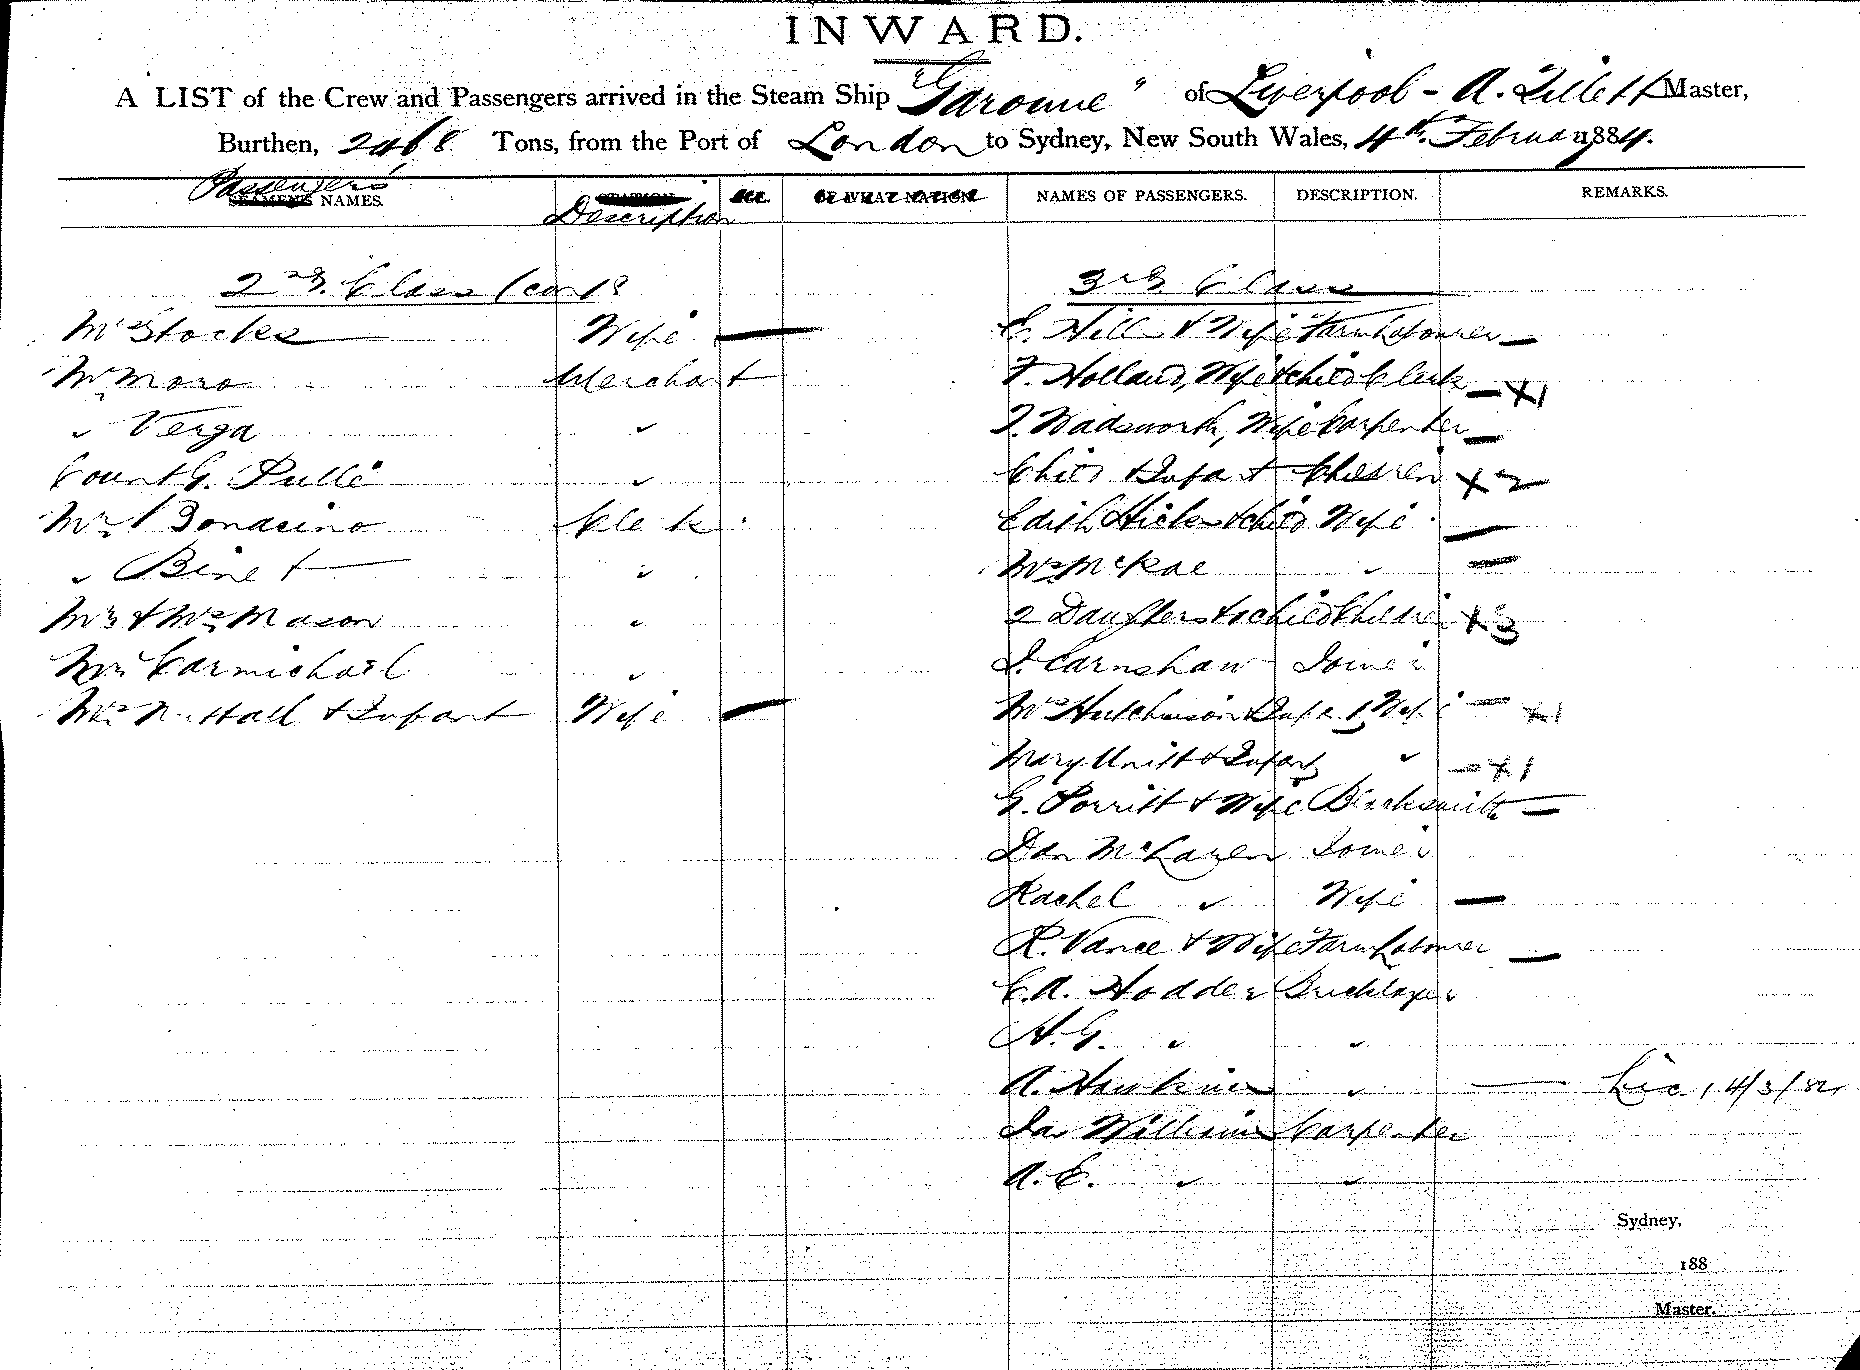 INWARD.
A LIST of the Crew and Passengers arrived in the Steam Ship "Garonne" of Liverpool - A. Tillett Master,
Burthen, 2468 Tons, from the Port of London to Sydney, New South Wales, 4th February 1884.
Passengers'
NAMES. Description NAMES OF PASSENGERS. DESCRIPTION. REMARKS.
2nd. Class (contd
Mrs Stocks Wife —
Mr Moro Merchant
" Verga "
Count G. Pullé "
Mr Bonasino Clerk
" Binet "
Mr & Mrs Mason "
Mr Carmichael "
Mrs Nuttall & Infant Wife —
3rd Class
C. Hill & Wife Farm Labourer —
F. Holland, Wife & child Clerk — X1
T. Wadsworth, Wife Carpenter —
Child & Infant Children X2
Edith Hicks & child Wife —
Mrs McRae " —
2 Daughters & 1 child Children X3
J. Earnshaw Joiner
Mrs Hutchinson & Infant Wife — X1
Mary Unitt & Infant " — X1
G. Porritt & Wife Blacksmith —
Dan McLaren Joiner
Rachel " Wife —
R. Vance & Wife Farm Labourer —
C. A. Hodder Bricklayer
H. G. " "
A. Hawkins " —
Jas Williams Carpenter
A. E. " "
Sydney,
188
Master.